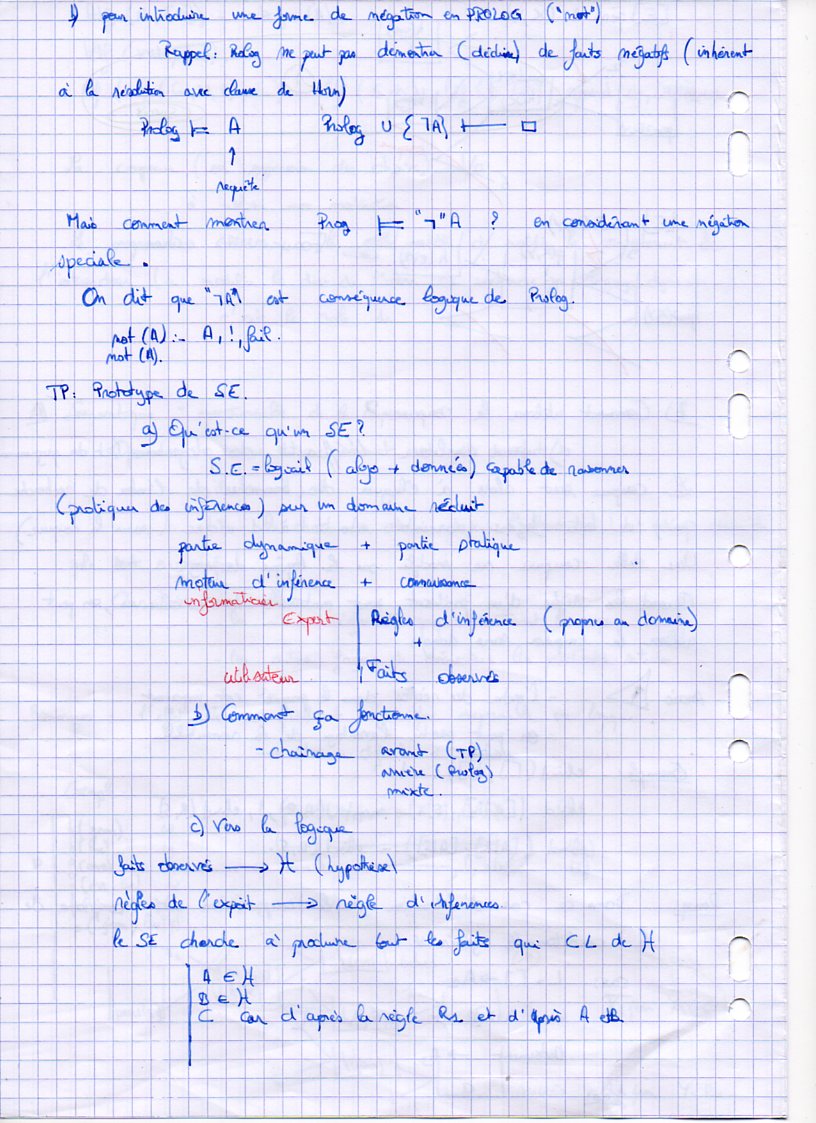 1) pour introduire une forme de négation en PROLOG ("not")
Rappel: Prolog ne peut pas démontrer (déduire) de faits négatifs (inhérent
à la résolution avec clause de Horn)
Prolog ⊨ A Prolog ∪ {¬A} ⊢ □
↑
requête
Mais comment montrer Prog ⊨ "¬"A ? en considérant une négation
speciale.
On dit que "¬A" est conséquence logique de Prolog.
not (A) :- A, !, fail.
not (A).
TP: Prototype de SE.
a) Qu'est-ce qu'un SE?
S.E. = logiciel (algo + données) capable de raisonner
(pratiquer des inférences) sur un domaine réduit
partie dynamique + partie statique
moteur d'inférence + connaissance
informaticien
Expert Règles d'inférence (propres au domaine)
+
utilisateur Faits observés
b) Comment ça fonctionne.
- chainage avant (TP)
arrière (Prolog)
mixte.
c) Vers la logique
faits observés → H (hypothèse)
règles de l'expert → règle d'inférences
le SE cherche à produire tout les faits qui CL de H
A ∈ H
B ∈ H
C car d'après la règle R1 et d'après A et B